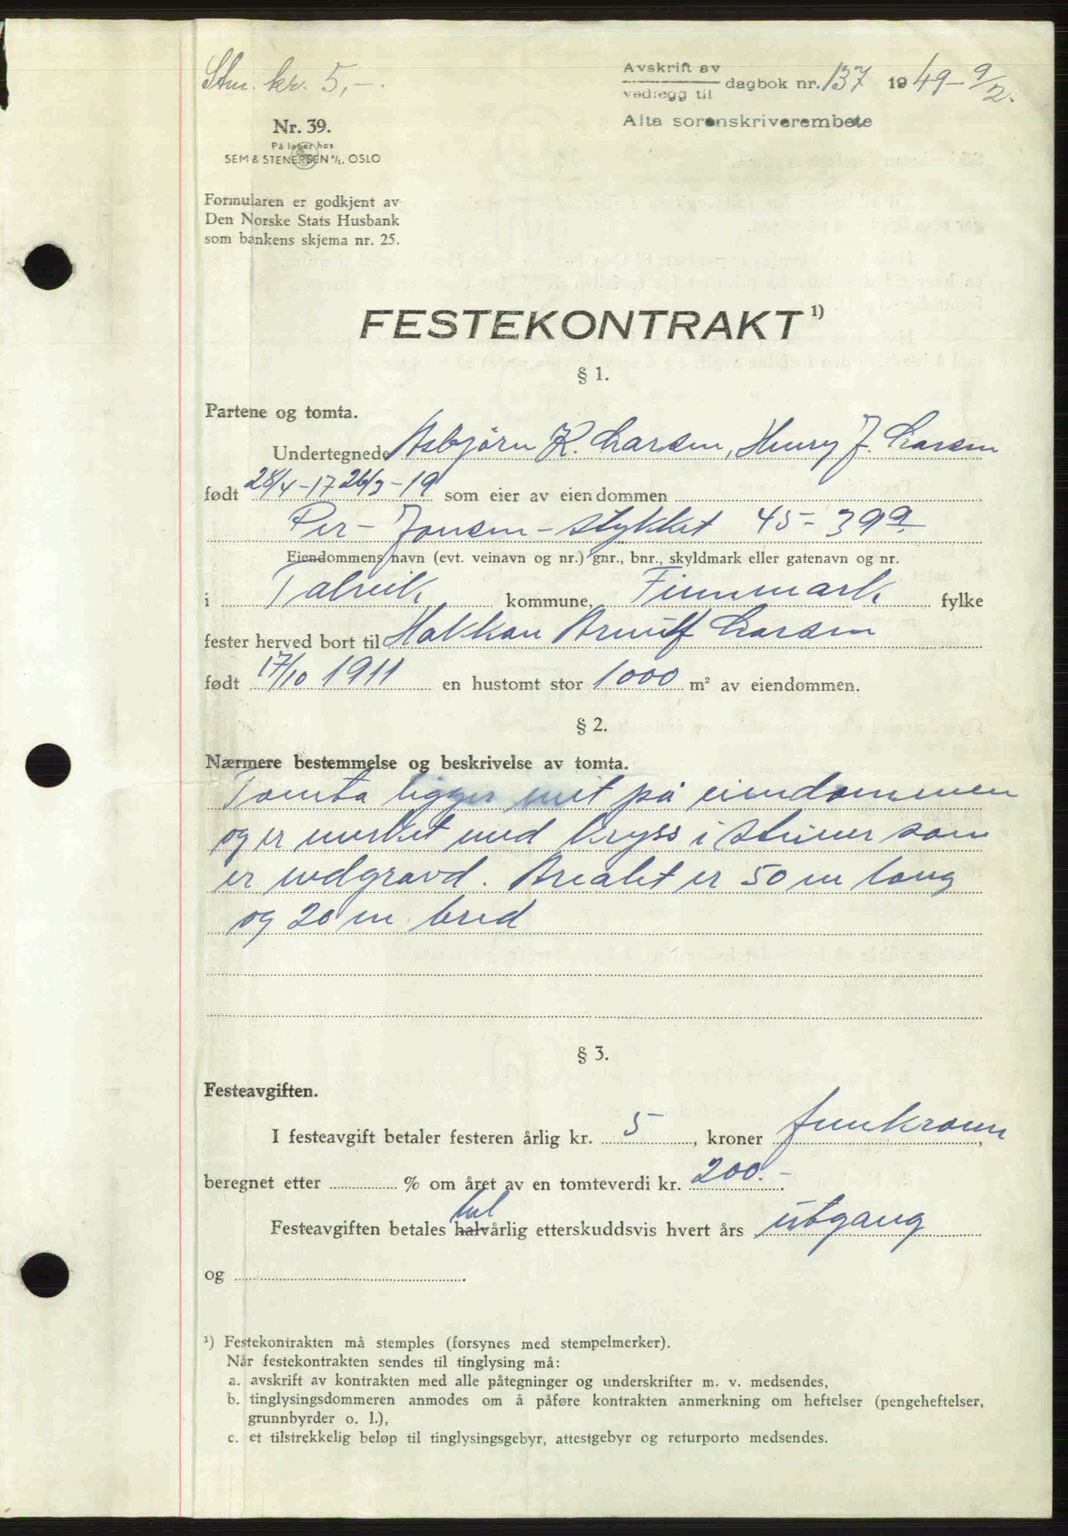 Stm. kr. 5,-.
Avskrift av
vedlegg til dagbok nr. 137 1949-9/2.
Alta sorenskriverembete
Nr. 39.
På lager hos
SEM & STENERSEN A/S, OSLO
Formularen er godkjent av
Den Norske Stats Husbank
som bankens skjema nr. 25.
FESTEKONTRAKT 1)
§ 1.
Partene og tomta.
Undertegnede Asbjørn K. Larsen, Henry J. Larsen
født 28/4-17 26/3-19 som eier av eiendommen
Per-Jonsen-stykket 45-399
Eiendommens navn (evt. veinavn og nr.) gnr., bnr., skyldmark eller gatenavn og nr.
i Talvik kommune, Finnmark fylke
fester herved bort til Hakkon Arnulf Larsen
født 17/10 1911 en hustomt stor 1000 m² av eiendommen.
§ 2.
Nærmere bestemmelse og beskrivelse av tomta.
Tomta ligger mit på eiendommen
og er merket med kryss i steiner som
er nedgravd. Arealet er 50 m lang
og 20 m bred
§ 3.
Festeavgiften.
I festeavgift betaler festeren årlig kr. 5, kroner femkroner,
beregnet etter % om året av en tomteverdi kr. 200.-.
hel
Festeavgiften betales halvårlig etterskuddsvis hvert års utgang
og
1) Festekontrakten må stemples (forsynes med stempelmerker).
Når festekontrakten sendes til tinglysing må:
a. avskrift av kontrakten med alle påtegninger og underskrifter m. v. medsendes,
b. tinglysingsdommeren anmodes om å påføre kontrakten anmerkning om heftelser (pengeheftelser,
grunnbyrder o. l.),
c. et tilstrekkelig beløp til tinglysingsgebyr, attestgebyr og returporto medsendes.